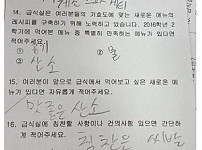 14. 급식실은 여러분들의 기호도에 맞는 새로운 메뉴의
레시피를 구축하기 위해 노력하고 있습니다. 2016학년 2
학기에 먹어본 메뉴 중 특별히 만족하는 메뉴가 있다면
적어주세요.
① 공기 ② 물
③ 산소
15. 여러분이 앞으로 급식에서 먹어보고 싶은 새로운 메뉴
가 있다면 자유롭게 적어주세요.
맛좋은 산소
16. 급식실에 칭찬할 사항이나 건의사항이 있으면 간단하
게 적어주세요.
칭찬은 씨발